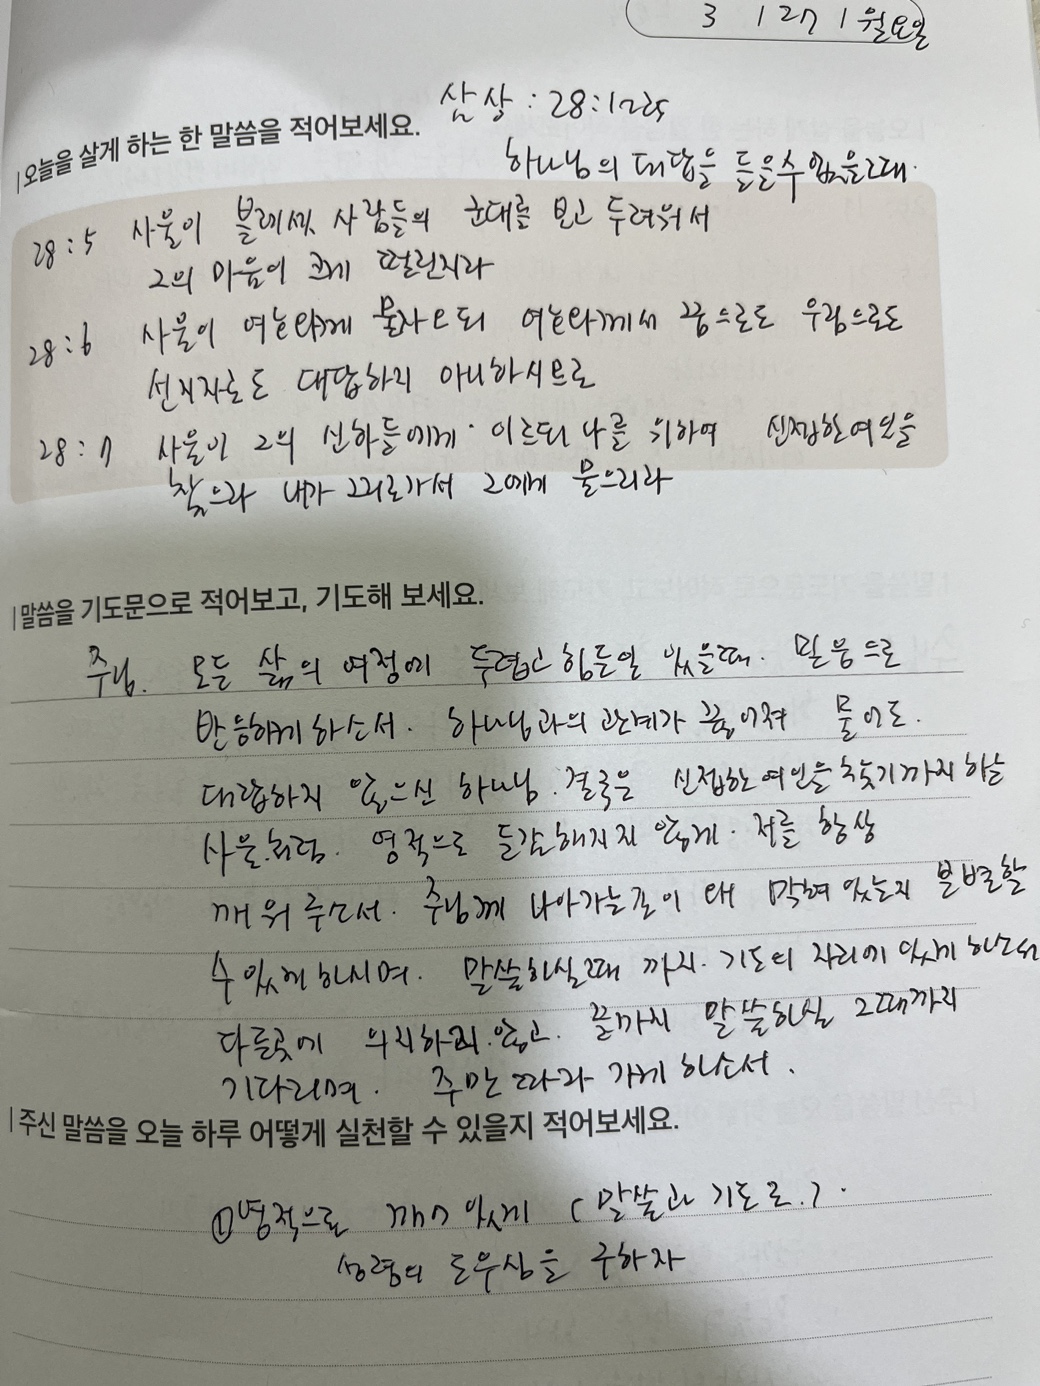 3 127 1 월요일
삼상 : 28:1-25
|오늘을 살게 하는 한 말씀을 적어보세요.
하나님의 대답을 들을수 없을때.
28 : 5 사울이 블레셋 사람들의 군대를 보고 두려워서
그의 마음이 크게 떨린지라
28 : 6 사울이 여호와께 묻자오되 여호와께서 꿈으로도 우림으로도
선지자로도 대답하지 아니하시므로
28 : 7 사울이 그의 신하들에게 이르되 나를 위하여 신접한여인을
찾으라 내가 그리로가서 그에게 물으리라
|말씀을 기도문으로 적어보고, 기도해 보세요.
주님. 모든 삶의 여정에 두렵고 힘든일 있을때. 믿음으로
반응하게 하소서. 하나님과의 관계가 끊어져 물어도.
대답하지 않으신 하나님. 결국은 신접한여인을찾기까지하는
사울처럼. 영적으로 둔감해지지 않게. 저를 항상
깨워주소서. 주님께 나아가는길이 왜 막혀있는지 분별할
수있게하시며. 말씀하실그때 까지. 기도의 자리에 있게 하소서
다른곳에 의지하지.않고. 끝까지 말씀하실 그때까지
기다리며. 주만 따라 가게 하소서.
|주신 말씀을 오늘 하루 어떻게 실천할 수 있을지 적어보세요.
①영적으로 깨어 있게 (말씀과 기도로.).
성령의 도우심을 구하자